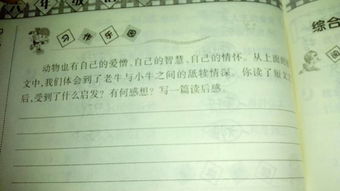 习作乐园
综合
动物也有自己的爱憎、自己的智慧、自己的情怀。从上面的短
文中,我们体会到了老牛与小牛之间的舐犊情深。你读了短文
后,受到了什么启发?有何感想?写一篇读后感。